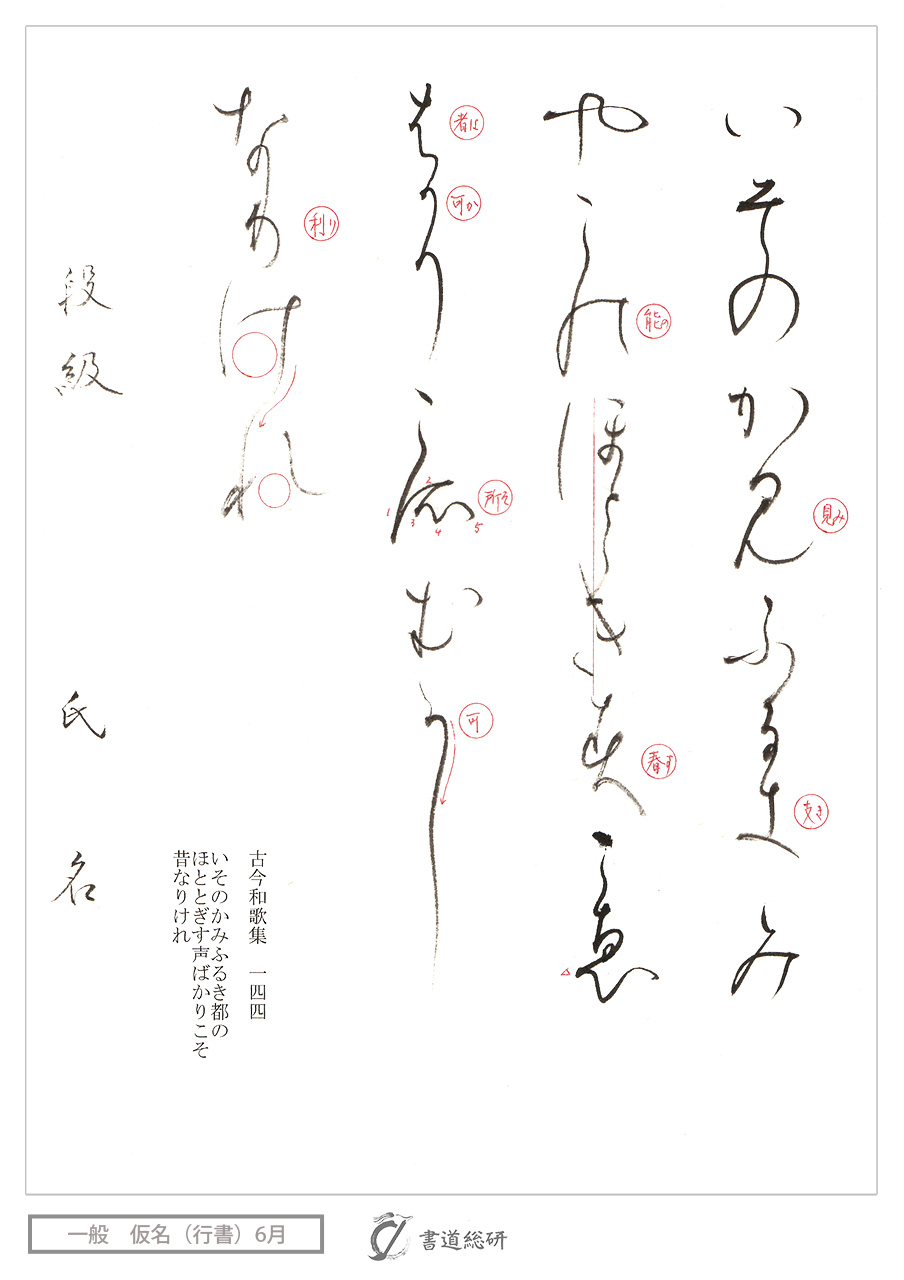 いそのか見ふる支み
見み
支き
やこ能ほとゝき春こゑ
能の
春す
者可りこ所む可し
者は
可か
所そ
1 2 3 4 5
可
な利けれ
利り
古今和歌集 一四四
いそのかみふるき都の
ほととぎす声ばかりこそ
昔なりけれ
段級 氏名
一般 仮名（行書）6月
書道総研